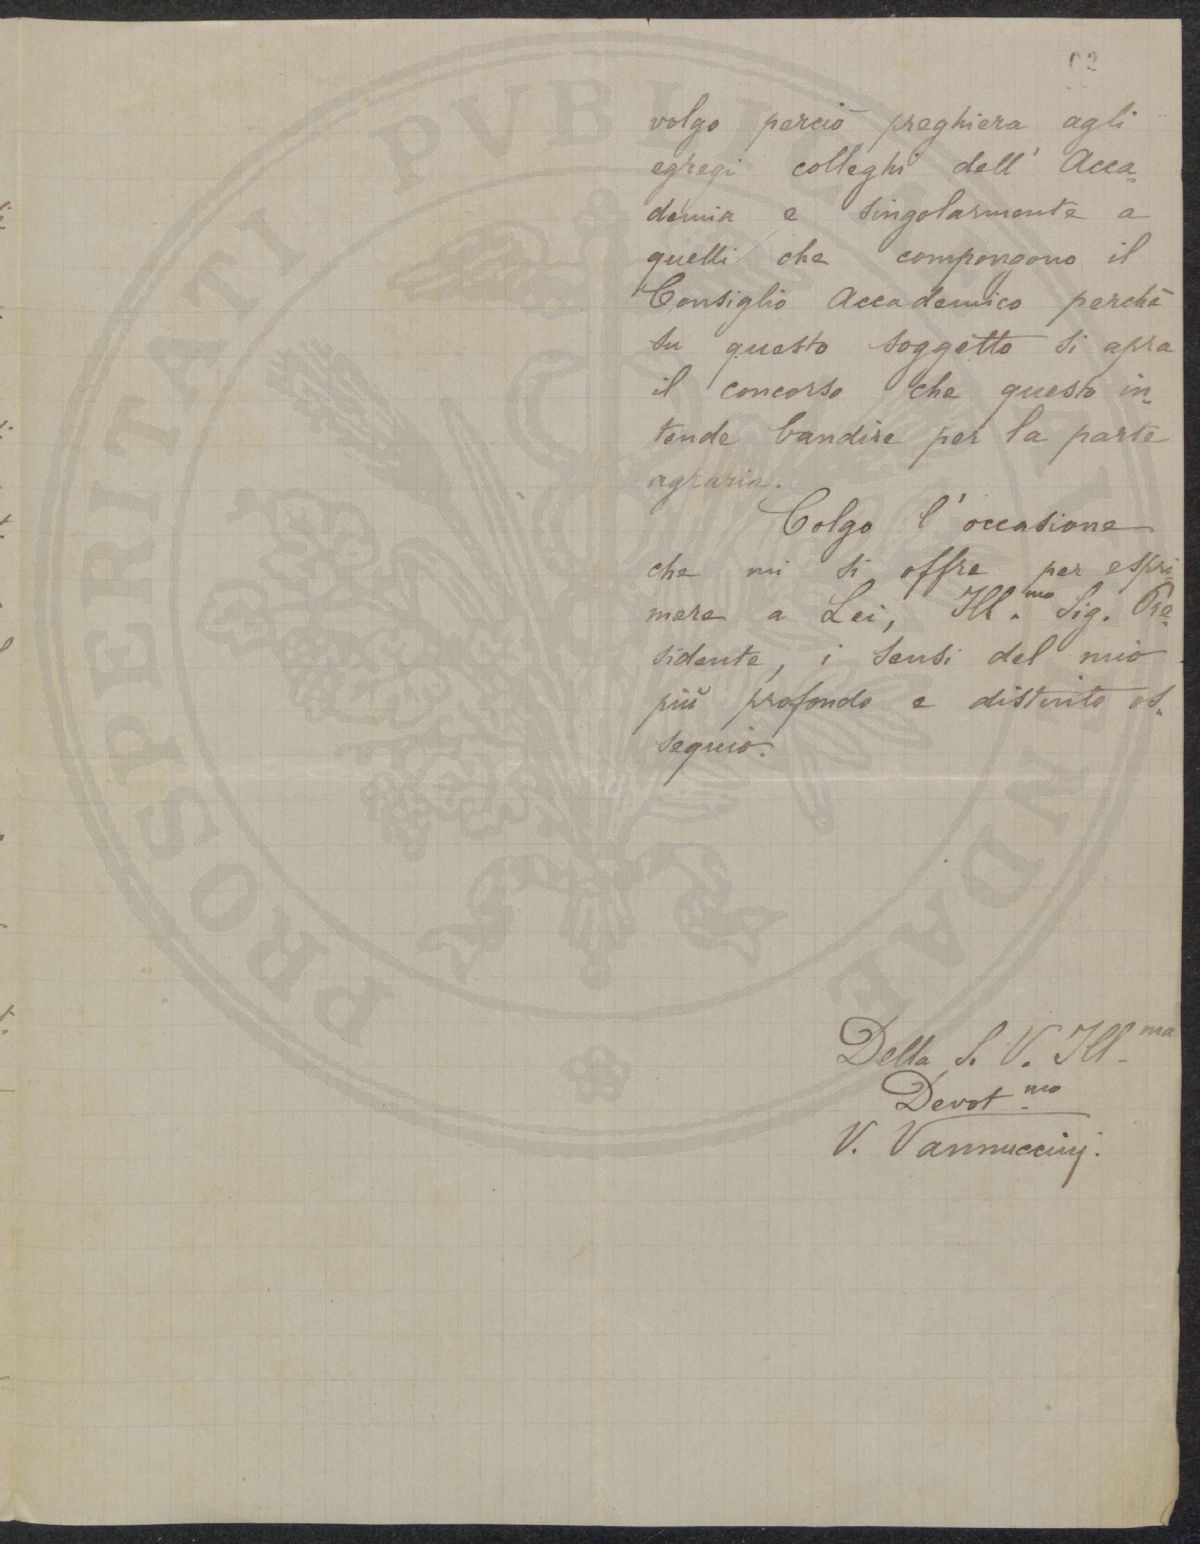 62
volgo perciò preghiera agli
egregi colleghi dell' Acca=
demia e singolarmente a
quelli che compongono il
Consiglio Accademico perchè
su questo soggetto si apra
il concorso che questo in=
tende bandire per la parte
agraria.
Colgo l'occasione
che mi si offre per espri=
mere a Lei, Ill.mo Sig. Pre=
sidente, i sensi del mio
più profondo e distinto os=
sequio.
Della S. V. Ill.ma
Devot.mo
V. Vannuccinj.
PROSPERITATI PVBLICAE AVGENDAE